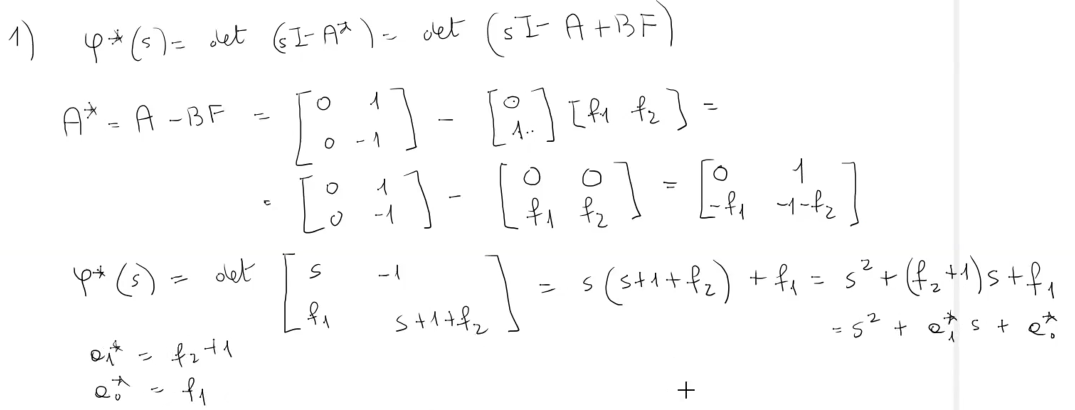 1) φ*(s) = det (sI-A*) = det (sI- A+BF)
A* = A -BF = [0 1; 0 -1] - [0; 1..] [f1 f2] =
= [0 1; 0 -1] - [0 0; f1 f2] = [0 1; -f1 -1-f2]
φ*(s) = det [s -1; f1 s+1+f2] = s(s+1+f2) + f1 = s² + (f2+1)s + f1
= s² + a1* s + a0*
a1* = f2+1
a0* = f1
+